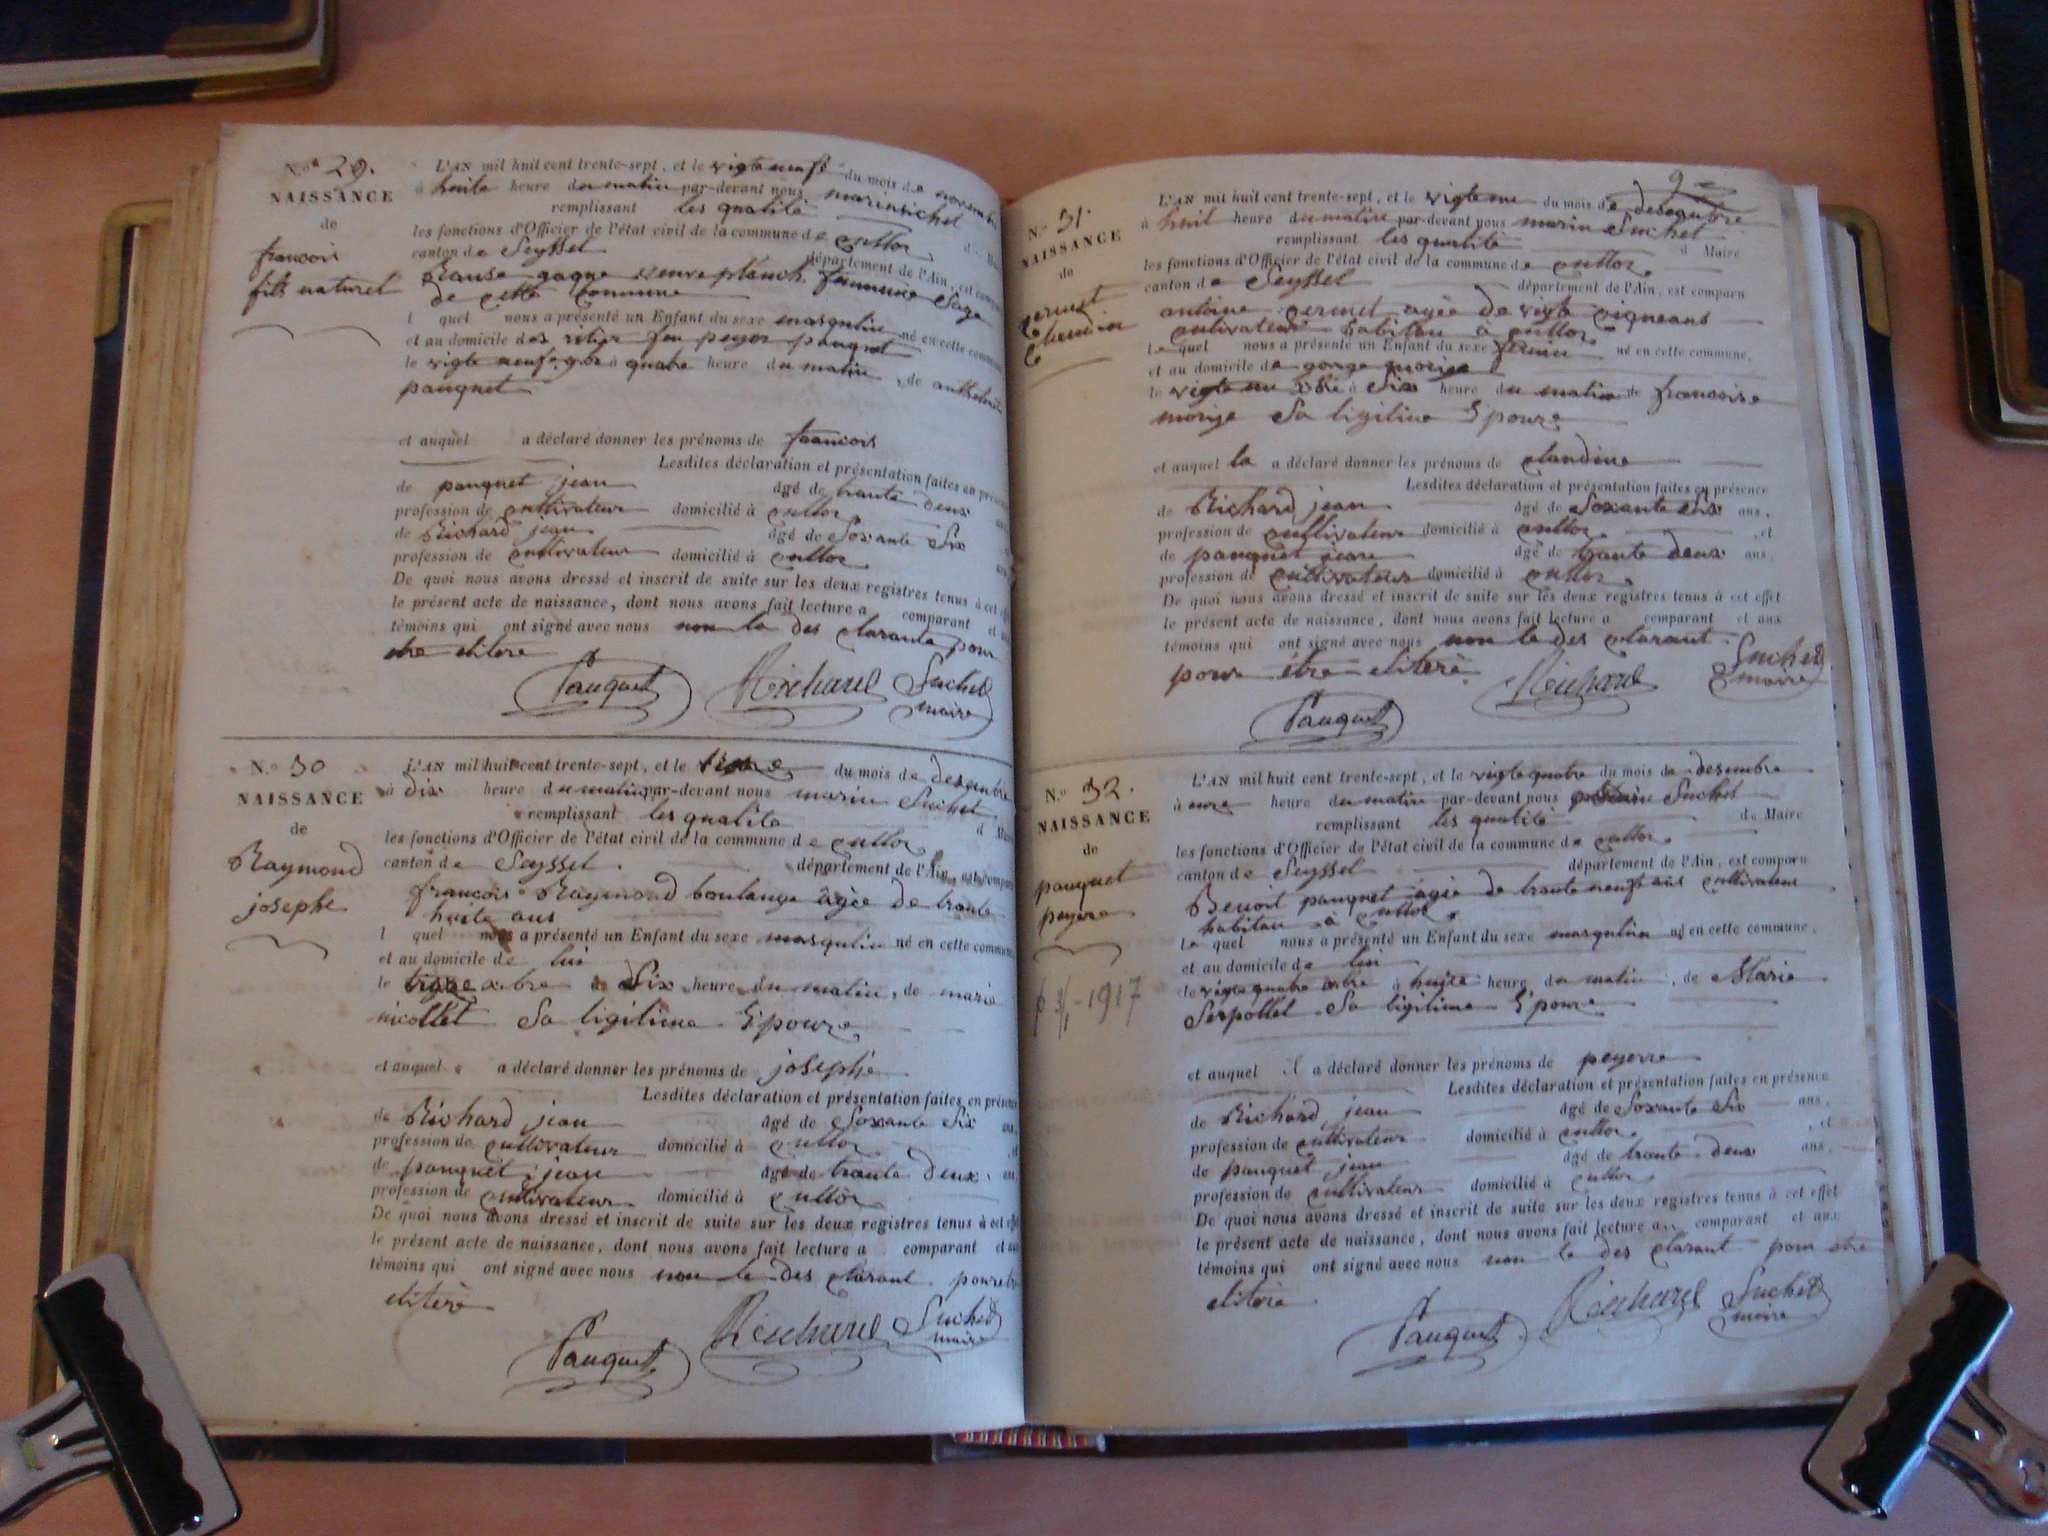 N.º 29.
NAISSANCE
de
francois
fils naturel
L'AN mil huit cent trente-sept, et le vigte neufe du mois de novembre
à huite heure du matin par-devant nous marin suchet
remplissant les qualité
les fonctions d'Officier de l'état civil de la commune de culloz
canton de Seyssel département de l'Ain, est comparu
gagne planch
de cette commune
l quel nous a présenté un Enfant du sexe masqulin né en cette commune
et au domicile des feu peyer pauquet
le vigte neufe à quatre heure du matin, de
pauquet
et auquel a déclaré donner les prénoms de francois
Lesdites déclaration et présentation faites en présence
de pauquet jean âgé de trante deux ans
profession de cultivateur domicilié à culloz
de Richard jean âgé de Soxante Six
profession de cultivateur domicilié à culloz
De quoi nous avons dressé et inscrit de suite sur les deux registres tenus à cet effet
le présent acte de naissance, dont nous avons fait lecture a comparant et aux
témoins qui ont signé avec nous non la des clarante pour
etre elitere
Pauquet Richard Suchet
maire
N.º 30
NAISSANCE
de
Raymond
josephe
L'AN mil huit cent trente-sept, et le du mois de desembre
à dix heure du matin par-devant nous marin Suchet
remplissant les qualité d Maire
les fonctions d'Officier de l'état civil de la commune de culloz
canton de Seyssel. département de l'Ain, est comparu
francois Raymond boulange agée de trante
huite ans
l quel nous a présenté un Enfant du sexe masqulin né en cette commune
et au domicile de lui
le xbre à Six heure du matin, de marie
nicollet Sa ligitime Epouze
et auquel a déclaré donner les prénoms de josephe
Lesdites déclaration et présentation faites en présence
de Richard jean âgé de Soxante Six ans,
profession de cultivateur domicilié à culloz, et
de pauquet jean âgé de trante deux ans,
profession de cultivateur domicilié à culloz
De quoi nous avons dressé et inscrit de suite sur les deux registres tenus à cet effet
le présent acte de naissance, dont nous avons fait lecture a comparant et aux
témoins qui ont signé avec nous non le des clarant pour etre
eliterè
Pauquet Richard Suchet
maire
9
N.º 31.
NAISSANCE
de
L'AN mil huit cent trente-sept, et le vigte un du mois de desembre
à huit heure du matin par-devant nous marin Suchet
remplissant les qualité d Maire
les fonctions d'Officier de l'état civil de la commune de culloz
canton de Seyssel département de l'Ain, est comparu
antoine agée de vigte
cultivateur habitan à culloz
le quel nous a présenté un Enfant du sexe né en cette commune,
et au domicile de
le vigte un xbre à Six heure du matin de francoise
morize Sa ligitime Epouze
et auquel la a déclaré donner les prénoms de claudine
Lesdites déclaration et présentation faites en présence
de Richard jean âgé de Soxante Six ans,
profession de cultivateur domicilié à culloz, et
de pauquet jean âgé de trante deux ans,
profession de cultivateur domicilié à culloz
De quoi nous avons dressé et inscrit de suite sur les deux registres tenus à cet effet
le présent acte de naissance, dont nous avons fait lecture a comparant et aux
témoins qui ont signé avec nous non le des clarant
pour être eliterè
Richard Suchet
maire
Pauquet
N.º 32.
NAISSANCE
de
pauquet
peyere
1917
L'AN mil huit cent trente-sept, et le vigte quatre du mois de desembre
à heure du matin par-devant nous marin Suchet
remplissant les qualité de Maire
les fonctions d'Officier de l'état civil de la commune de culloz
canton de Seyssel département de l'Ain, est comparu
Benoit pauquet agée de trante neufe ans cultivateur
habitan à culloz
le quel nous a présenté un Enfant du sexe masqulin né en cette commune,
et au domicile de lui
le vigte quatre xbre à huite heure du matin, de Marie
Serpollet Sa ligitime Epouze
et auquel il a déclaré donner les prénoms de peyerre
Lesdites déclaration et présentation faites en présence
de Richard jean âgé de Soxante Six ans,
profession de cultivateur domicilié à culloz, et
de pauquet jean âgé de trante deux ans,
profession de cultivateur domicilié à culloz
De quoi nous avons dressé et inscrit de suite sur les deux registres tenus à cet effet
le présent acte de naissance, dont nous avons fait lecture a comparant et aux
témoins qui ont signé avec nous non le des clarant pour etre
elitere
Pauquet Richard Suchet
maire